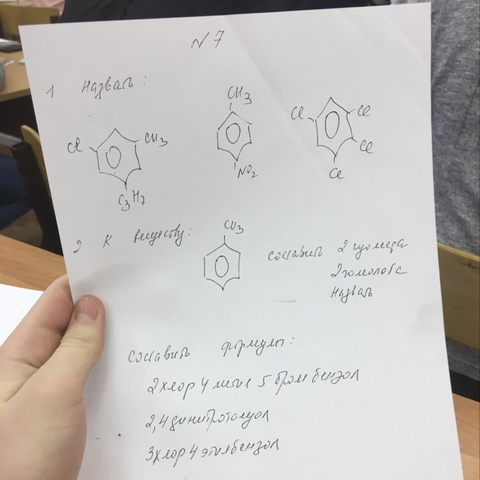 № 7
1 Назвать:
CH3
Cl CH3
C3H7
NO2
Cl Cl
Cl
Cl
2 К веществу:
CH3
составить 2 изомера
2 гомолога
назвать
составить формулы:
2 хлор 4 метил 5 бром бензол
2,4 динитротолуол
3 хлор 4 этилбензол